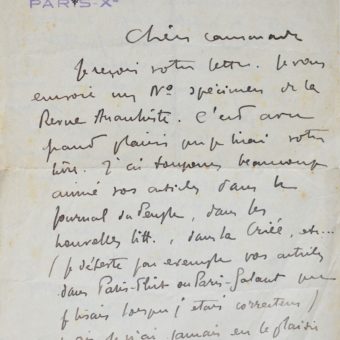 PARIS-Xe
Cher camarade
Je reçois votre lettre. Je vous
envoie un No spécimen de la
Revue Anarchiste. C'est avec
grand plaisir que je lirai votre
livre. J'ai toujours beaucoup
aimé vos articles dans le
Journal du Peuple, dans les
Nouvelles litt., dans la Criée, etc...
(je déteste par exemple vos articles
dans Paris-Flirt ou Paris-Galant que
je lisais lorsque j'étais correcteur)
je n'ai jamais eu le plaisir